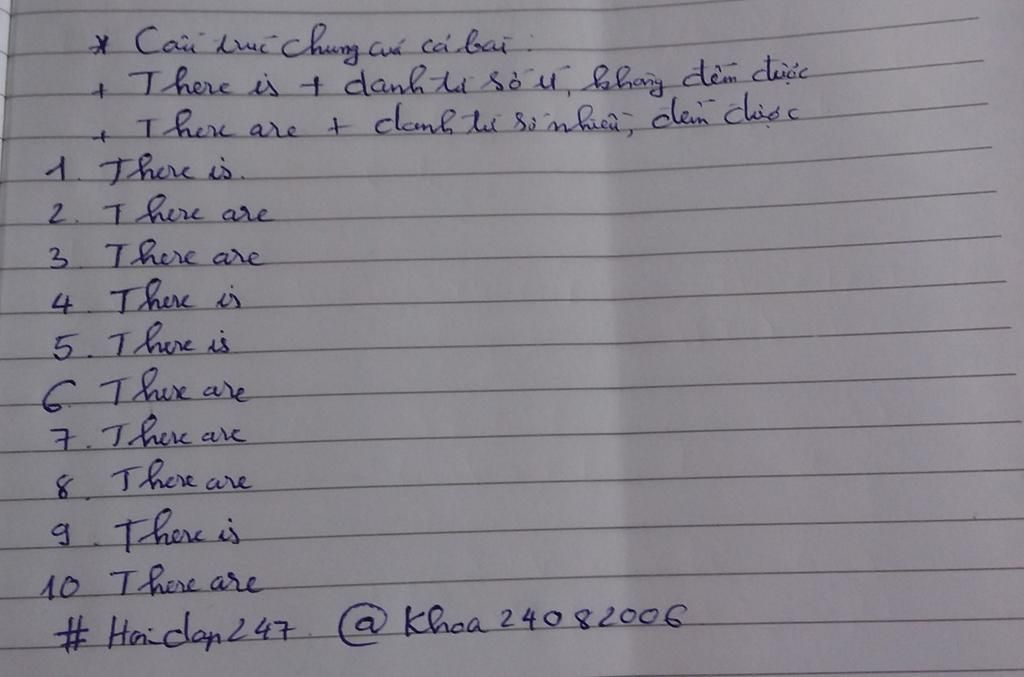 * Cấu trúc chung cả cả bài :
+ There is + danh từ số ít, không đếm được
+ There are + danh từ số nhiều, đếm được
1. There is.
2. There are
3 There are
4 There is
5. There is
6. There are
7. There are
8. There are
9. There is
10 There are
# Hoidap247. @ Khoa 24082006